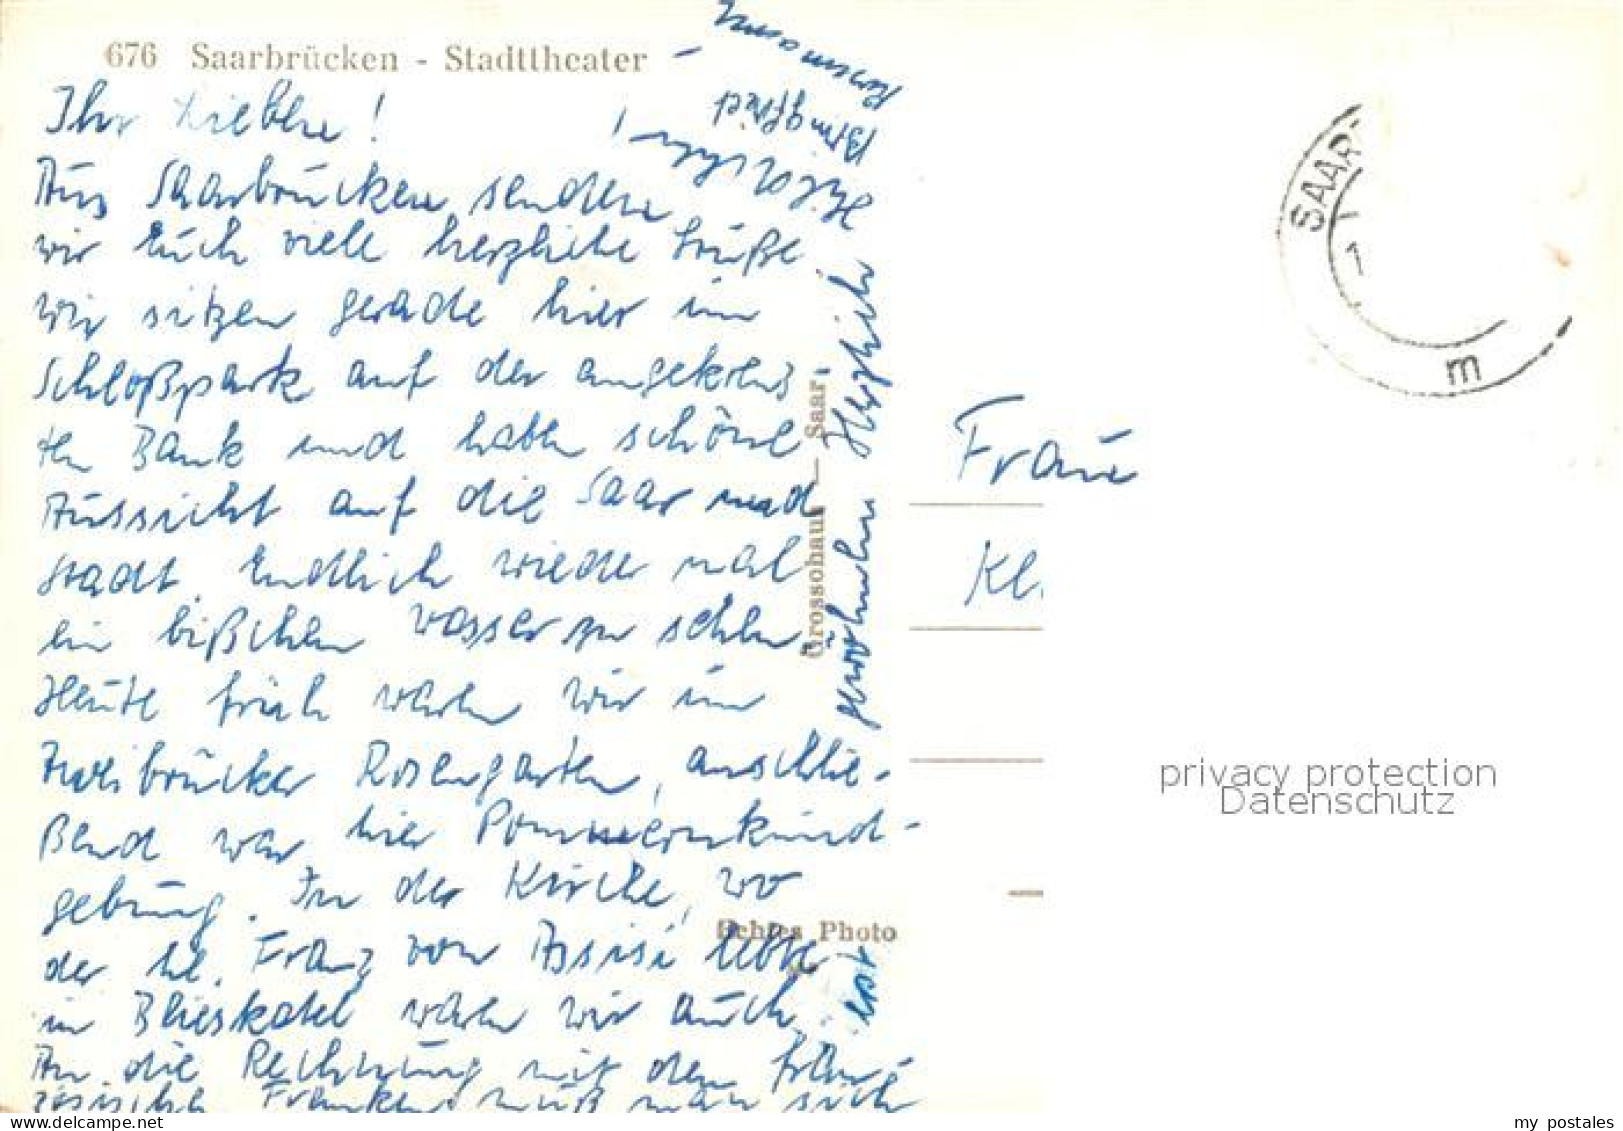 676 Saarbrücken - Stadttheater
Ihr Lieben!
Aus Saarbrücken senden
wir Euch viele herzliche Grüße
Wir sitzen gerade hier im
Schloßpark auf der angekreuz
ten Bank und haben schöne
Aussicht auf die Saar und
Stadt. Endlich wieder mal
ein bißchen Wasser zu sehen.
Heute früh waren wir im
Zweibrücker Rosengarten, anschlie-
ßend war hier Pommernkund-
gebung. In der Kirche, wo
der hl. Franz von Assisi lebte
in Blieskastel waren wir auch.
An die Rechnung mit den fran-
zösischen Franken muß man sich
erst
gewöhnen Herzlich
Rosemarie
Grossohaus — Saar.
Echtes Photo
SAAR
1
m
Frau
Kl
privacy protection
Datenschutz
www.delcampe.net
my_postales